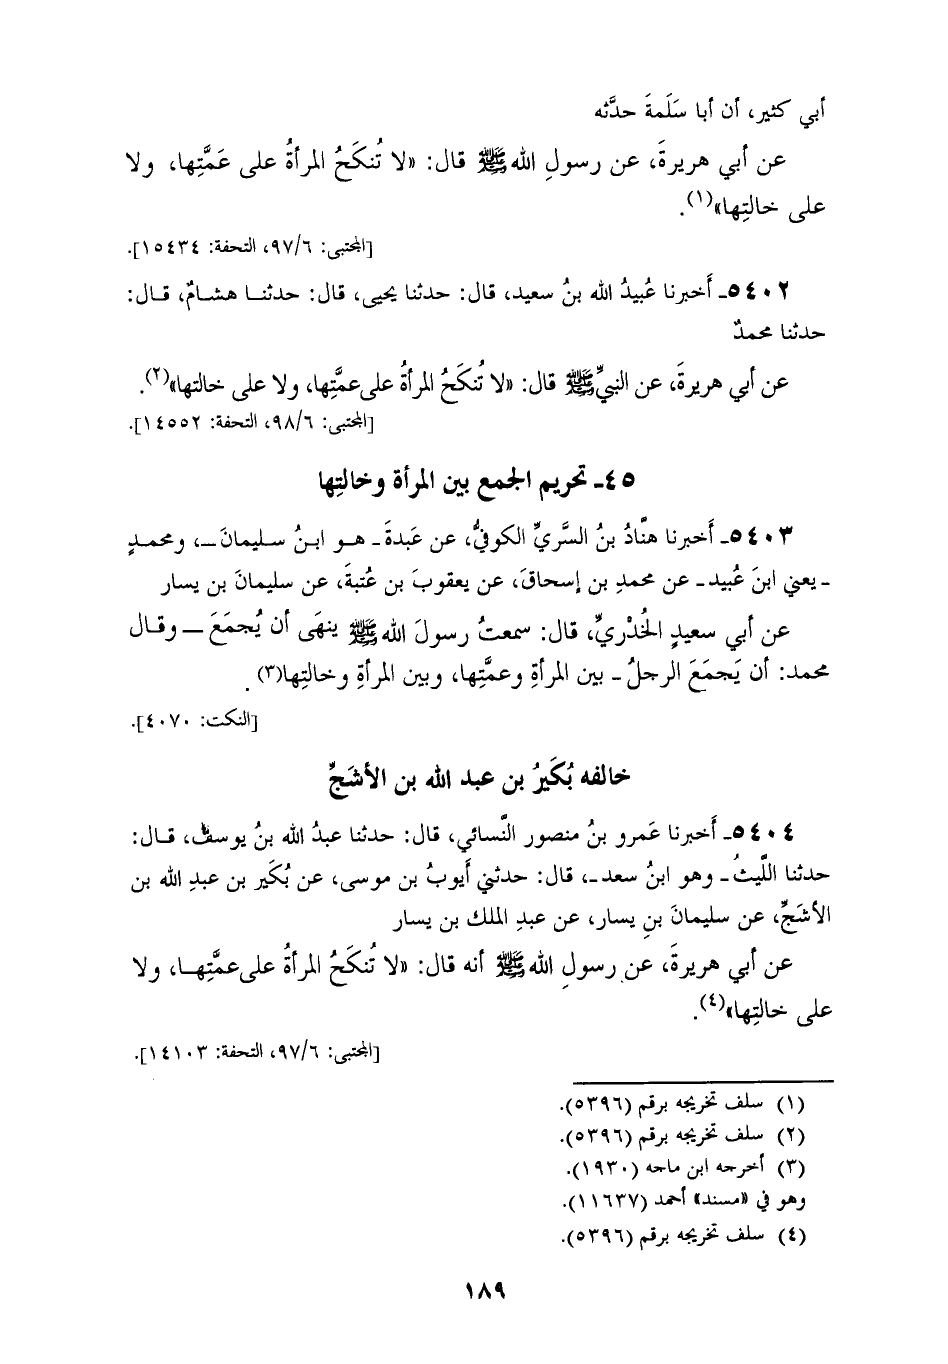 أبي كثير، أن أبا سَلَمةَ حدَّثه
عن أبي هريرةَ، عن رسولِ الله ﷺ قال: «لا تُنكَحُ المرأةُ على عَمَّتِها، ولا
على خالتِها»(١).
[المجتبى: ٩٧/٦، التحفة: ١٥٤٣٤].
٥٤٠٢ـ أَخبرنا عُبيدُ الله بنُ سعيد، قال: حدثنا يحيى، قال: حدثنـا هشـامٌ، قـال:
حدثنا محمدٌ
عن أبي هريرةَ، عن النبيِّ ﷺ قال: «لا تُنكَحُ المرأةُ على عمَّتِها، ولا على خالتها»(٢).
[المجتبى: ٩٨/٦، التحفة: ١٤٥٥٢].
٤٥ـ تحريم الجمع بين المرأة وخالتِها
٥٤٠٣ـ أَخبرنا هنَّادُ بنُ السَّريِّ الكوفيُّ، عن عَبدةَ ـ هـو ابـنُ سـليمانَ ـ، ومحمـدٍ
ـ يعني ابنَ عُبيد ـ عن محمدِ بن إسحاقَ، عن يعقوبَ بن عُتبةَ، عن سليمانَ بن يسار
عن أبي سعيدٍ الخُدْريِّ، قال: سمعتُ رسولَ الله ﷺ ينهَى أن يُجمَعَ ــ وقـال
محمد: أن يَجمَعَ الرجلُ ـ بين المرأةِ وعمَّتِها، وبين المرأةِ وخالتِها(٣).
[النكت: ٤٠٧٠].
خالفه بُكَيرُ بن عبد الله بن الأشَجِّ
٥٤٠٤ـ أَخبرنا عَمرو بنُ منصور النَّسائي، قال: حدثنا عبدُ الله بنُ يوسفَ، قـال:
حدثنا اللَّيثُ ـ وهو ابنُ سعد ـ، قال: حدثني أَيوبُ بن موسى، عن بُكَير بن عبدِ الله بن
الأشَجِّ، عن سليمانَ بنِ يسار، عن عبدِ الملك بن يسار
عن أبي هريرةَ، عن رسولِ الله ﷺ أنه قال: «لا تُنكَحُ المرأةُ على عمَّتِهـا، ولا
على خالتِها»(٤).
[المجتبى: ٩٧/٦، التحفة: ١٤١٠٣].
(١) سلف تخريجه برقم (٥٣٩٦).
(٢) سلف تخريجه برقم (٥٣٩٦).
(٣) أخرجه ابن ماجه (١٩٣٠).
وهو في «مسند» أحمد (١١٦٣٧).
(٤) سلف تخريجه برقم (٥٣٩٦).
١٨٩